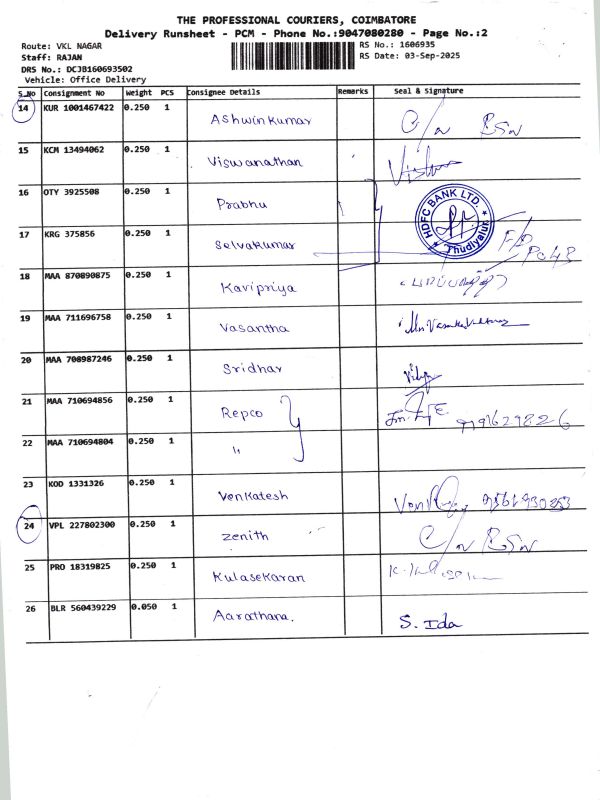 THE PROFESSIONAL COURIERS, COIMBATORE
Delivery Runsheet - PCM - Phone No.:9047080280 - Page No.:2
Route: VKL NAGAR
RS No.: 1606935
Staff: RAJAN
RS Date: 03-Sep-2025
DRS No.: DCJB160693502
Vehicle: Office Delivery
S_No Consignment No Weight PCS Consignee Details Remarks Seal & Signature
14 KUR 1001467422 0.250 1 Ashwinkumar
15 KCM 13494062 0.250 1 Viswanathan
16 OTY 3925508 0.250 1 Prabhu
HDFC BANK LTD. Thudiyalur
17 KRG 375856 0.250 1 Selvakumar
18 MAA 870890875 0.250 1 Kavipriya
19 MAA 711696758 0.250 1 Vasantha
20 MAA 708987246 0.250 1 Sridhar
21 MAA 710694856 0.250 1 Repco
22 MAA 710694804 0.250 1 "
23 KOD 1331326 0.250 1 Venkatesh
24 VPL 227802300 0.250 1 Zenith
25 PRO 18319825 0.250 1 Kulasekaran
26 BLR 560439229 0.050 1 Aarathana. S. Ida